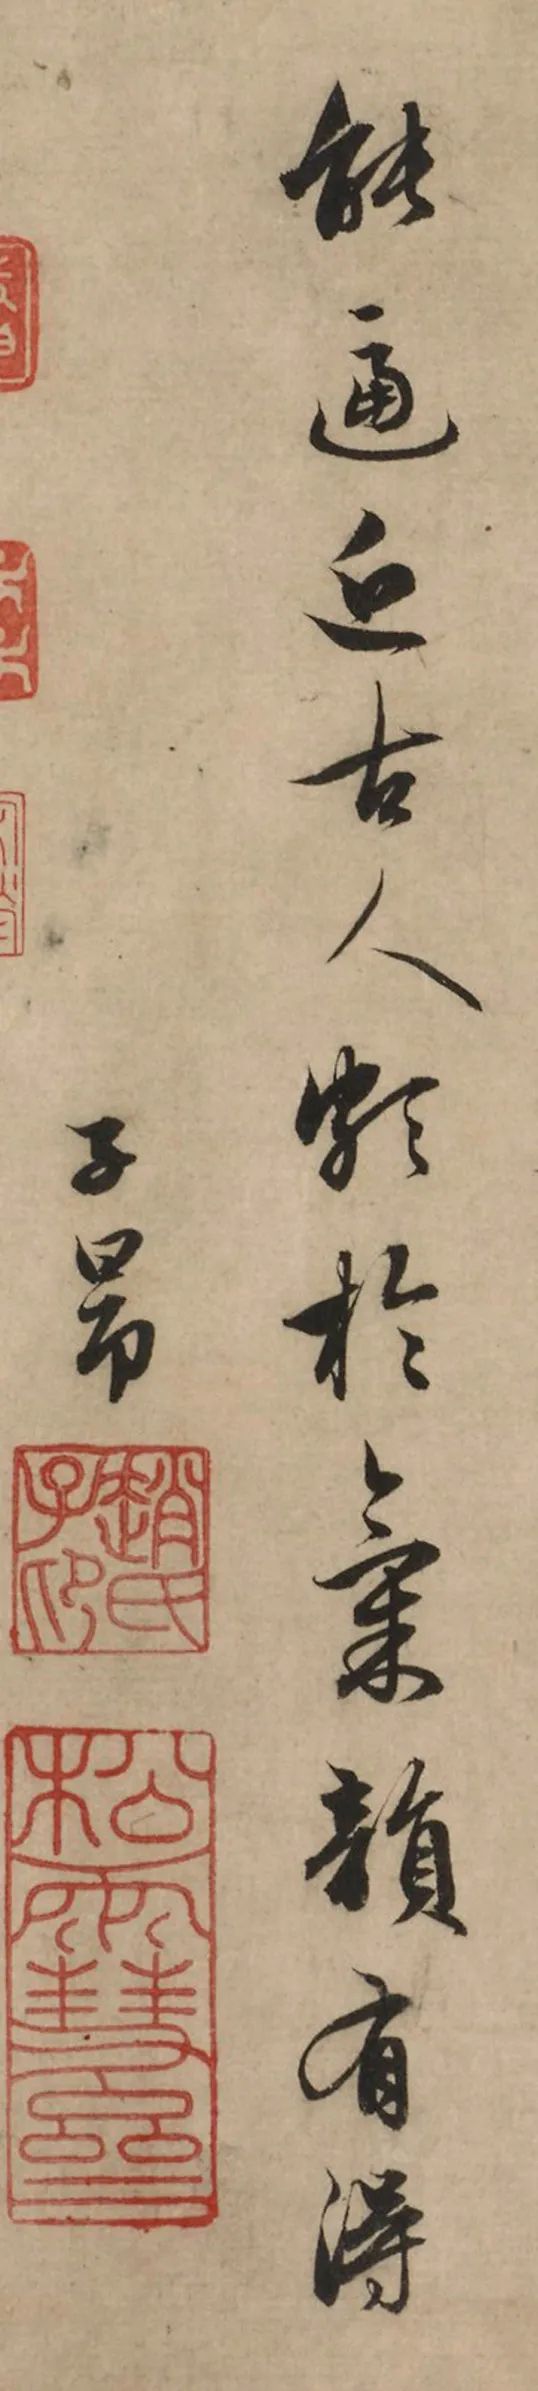 能逼近古人頗於氣韻有得
子昂
趙氏子印
松雪齋